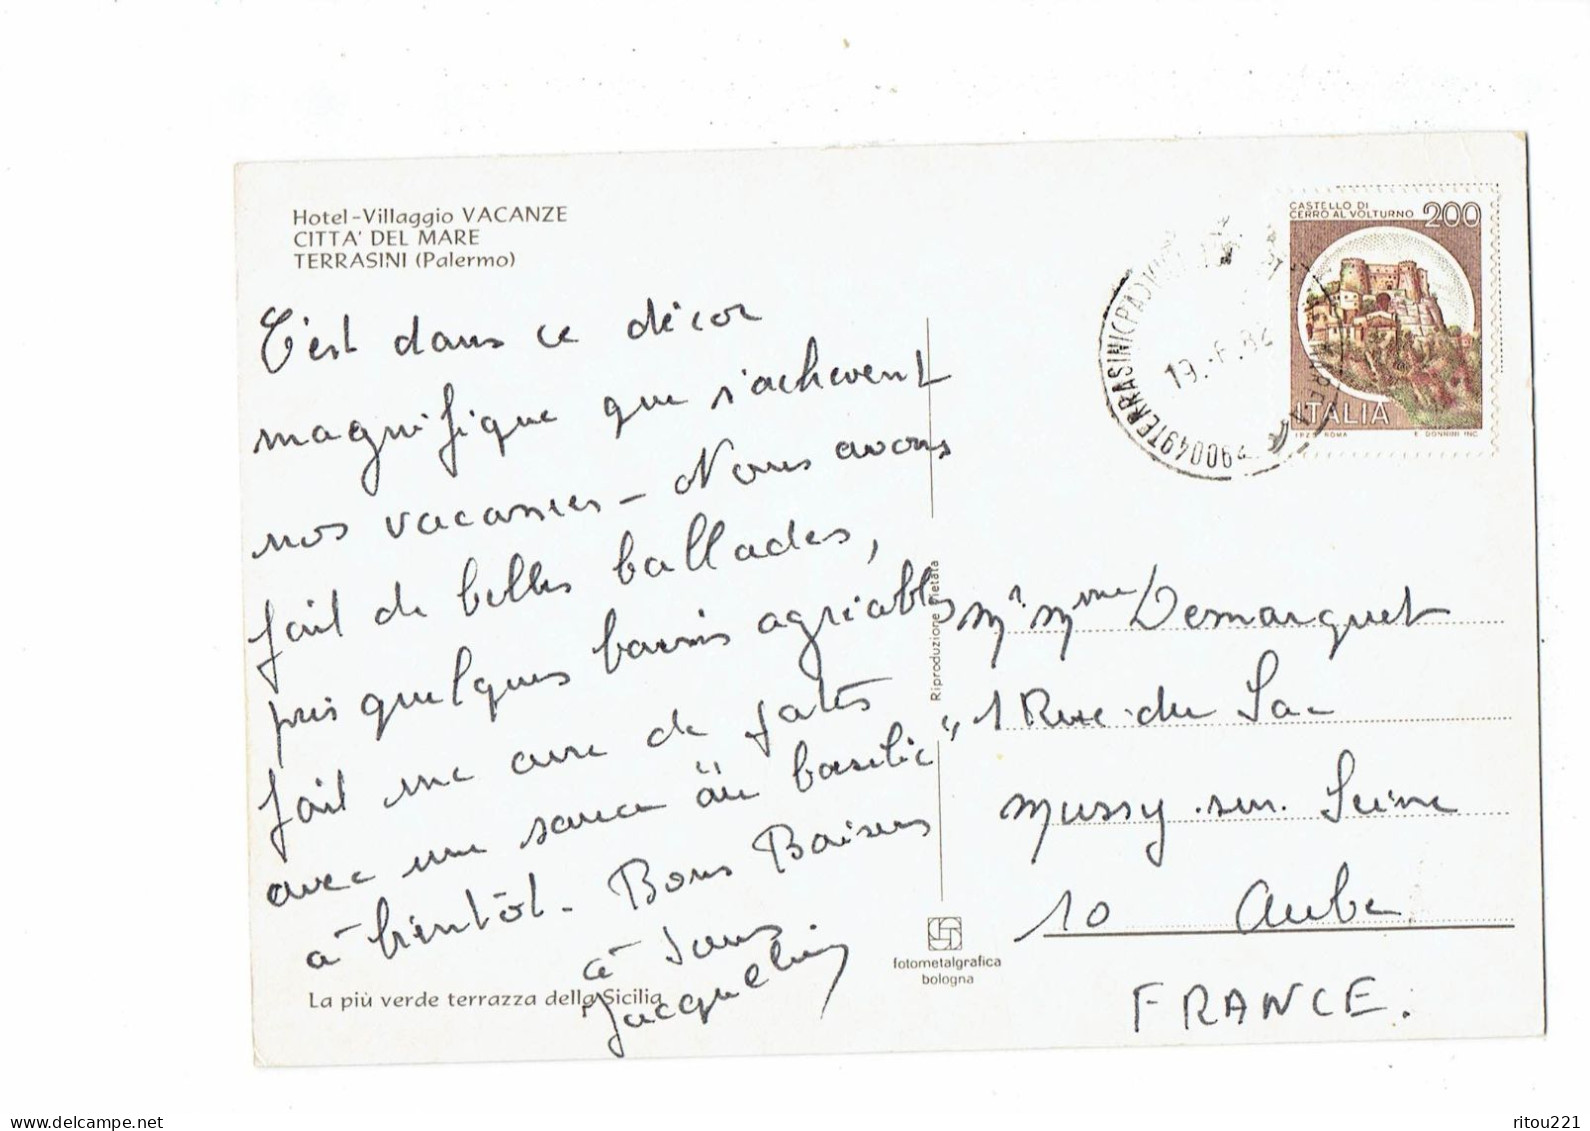 Hotel-Villaggio VACANZE
CITTA' DEL MARE
TERRASINI (Palermo)
C'est dans ce décor
magnifique que s'achèvent
nos vacances - Nous avons
fait de belles ballades,
pris quelques bains agréables
fait une cure de pates
avec une sauce "au basilic"
à bientôt - Bons Baisers
à tous
Jacqueline
La più verde terrazza della Sicilia
Riproduzione vietata
fotometalgrafica
bologna
CASTELLO DI
CERRO AL VOLTURNO 200
ITALIA
I.P.Z.S. ROMA E. DONNINI INC.
90049 TERRASINI (PA)
19.-6.82
Mr Mme Demarquet
1 Rue du Sac
Mussy-sur-Seine
10 Aube
FRANCE.
ritou221